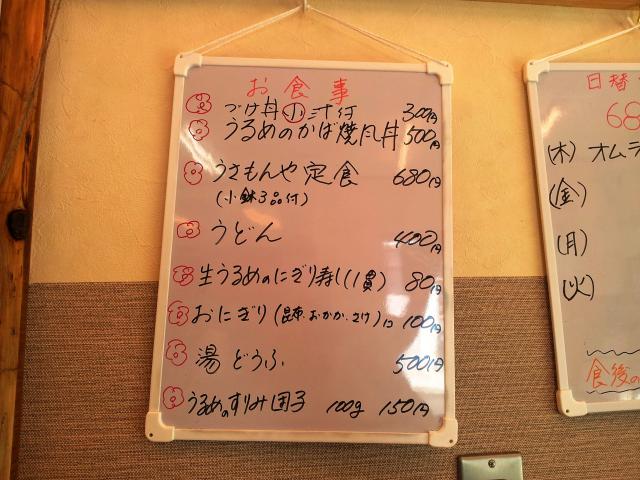 お食事
づけ丼 小 汁付 300円
うるめのかば焼風丼 500円
うさもんや定食 680円
(小鉢3品付)
うどん 400円
生うるめのにぎり寿し(1貫) 80円
おにぎり(昆布・おかか・さけ)1コ 100円
湯どうふ 500円
うるめのすりみ団子 100g 150円
日替
68
(木) オムラ
(金)
(月)
(火)
食後の